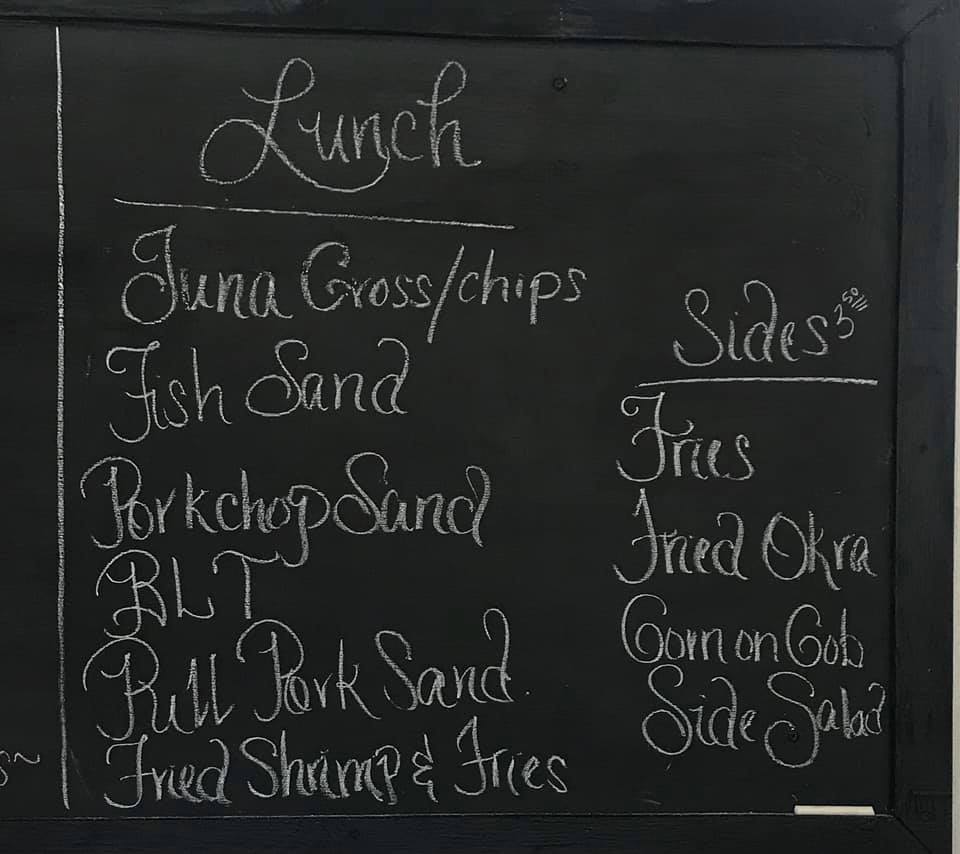 Lunch
Tuna Cross/chips
Fish Sand
Porkchop Sand
BLT
Pull Pork Sand.
Fried Shrimp & Fries
Sides 3.50
Fries
Fried Okra
Corn on Cob
Side Salad